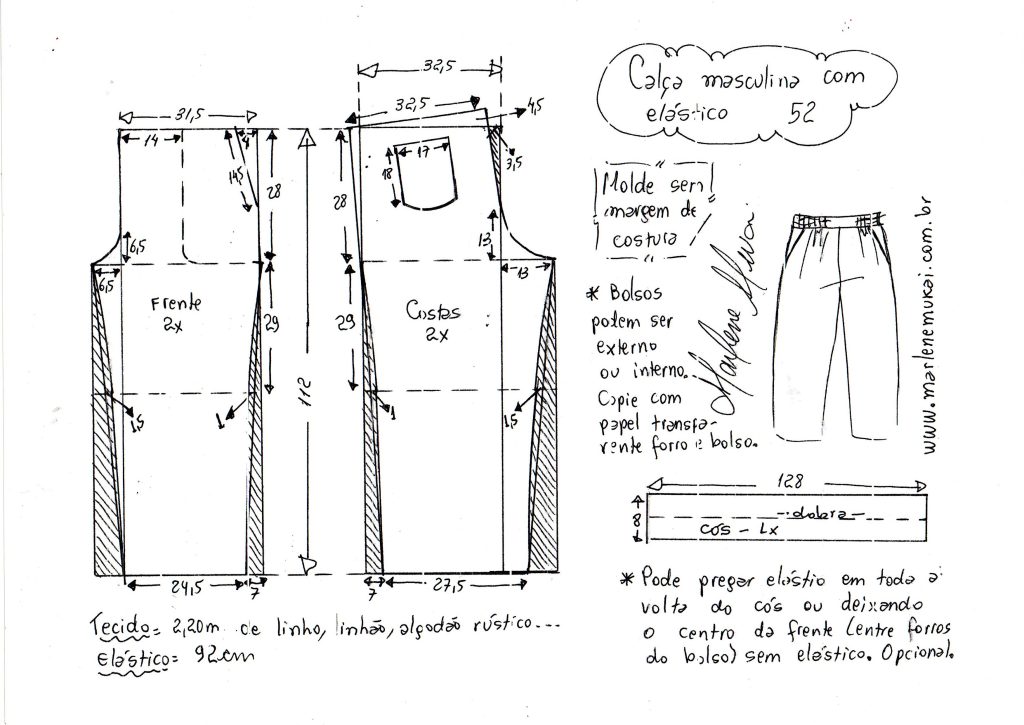 Calça masculina com
elástico 52
32,5
31,5
32,5
4,5
14
4
14,5
28
28
17
18
3,5
6,5
6,5
13
13
Frente
2x
Costas
2x
29
29
112
1,5
1
1
1,5
24,5
7
7
27,5
Molde sem
margem de
costura
Marlene Mukai
www.marlenemukai.com.br
* Bolsos
podem ser
externo
ou interno.
Copie com
papel transpa-
rente forro e bolso.
128
8
dobra
cós - 1x
Tecido= 2,20m de linho, linhão, algodão rústico...
Elástico= 92cm
* Pode pregar elástio em toda a
volta do cós ou deixando
o centro da frente (entre forros
do bolso) sem elástico. Opcional.